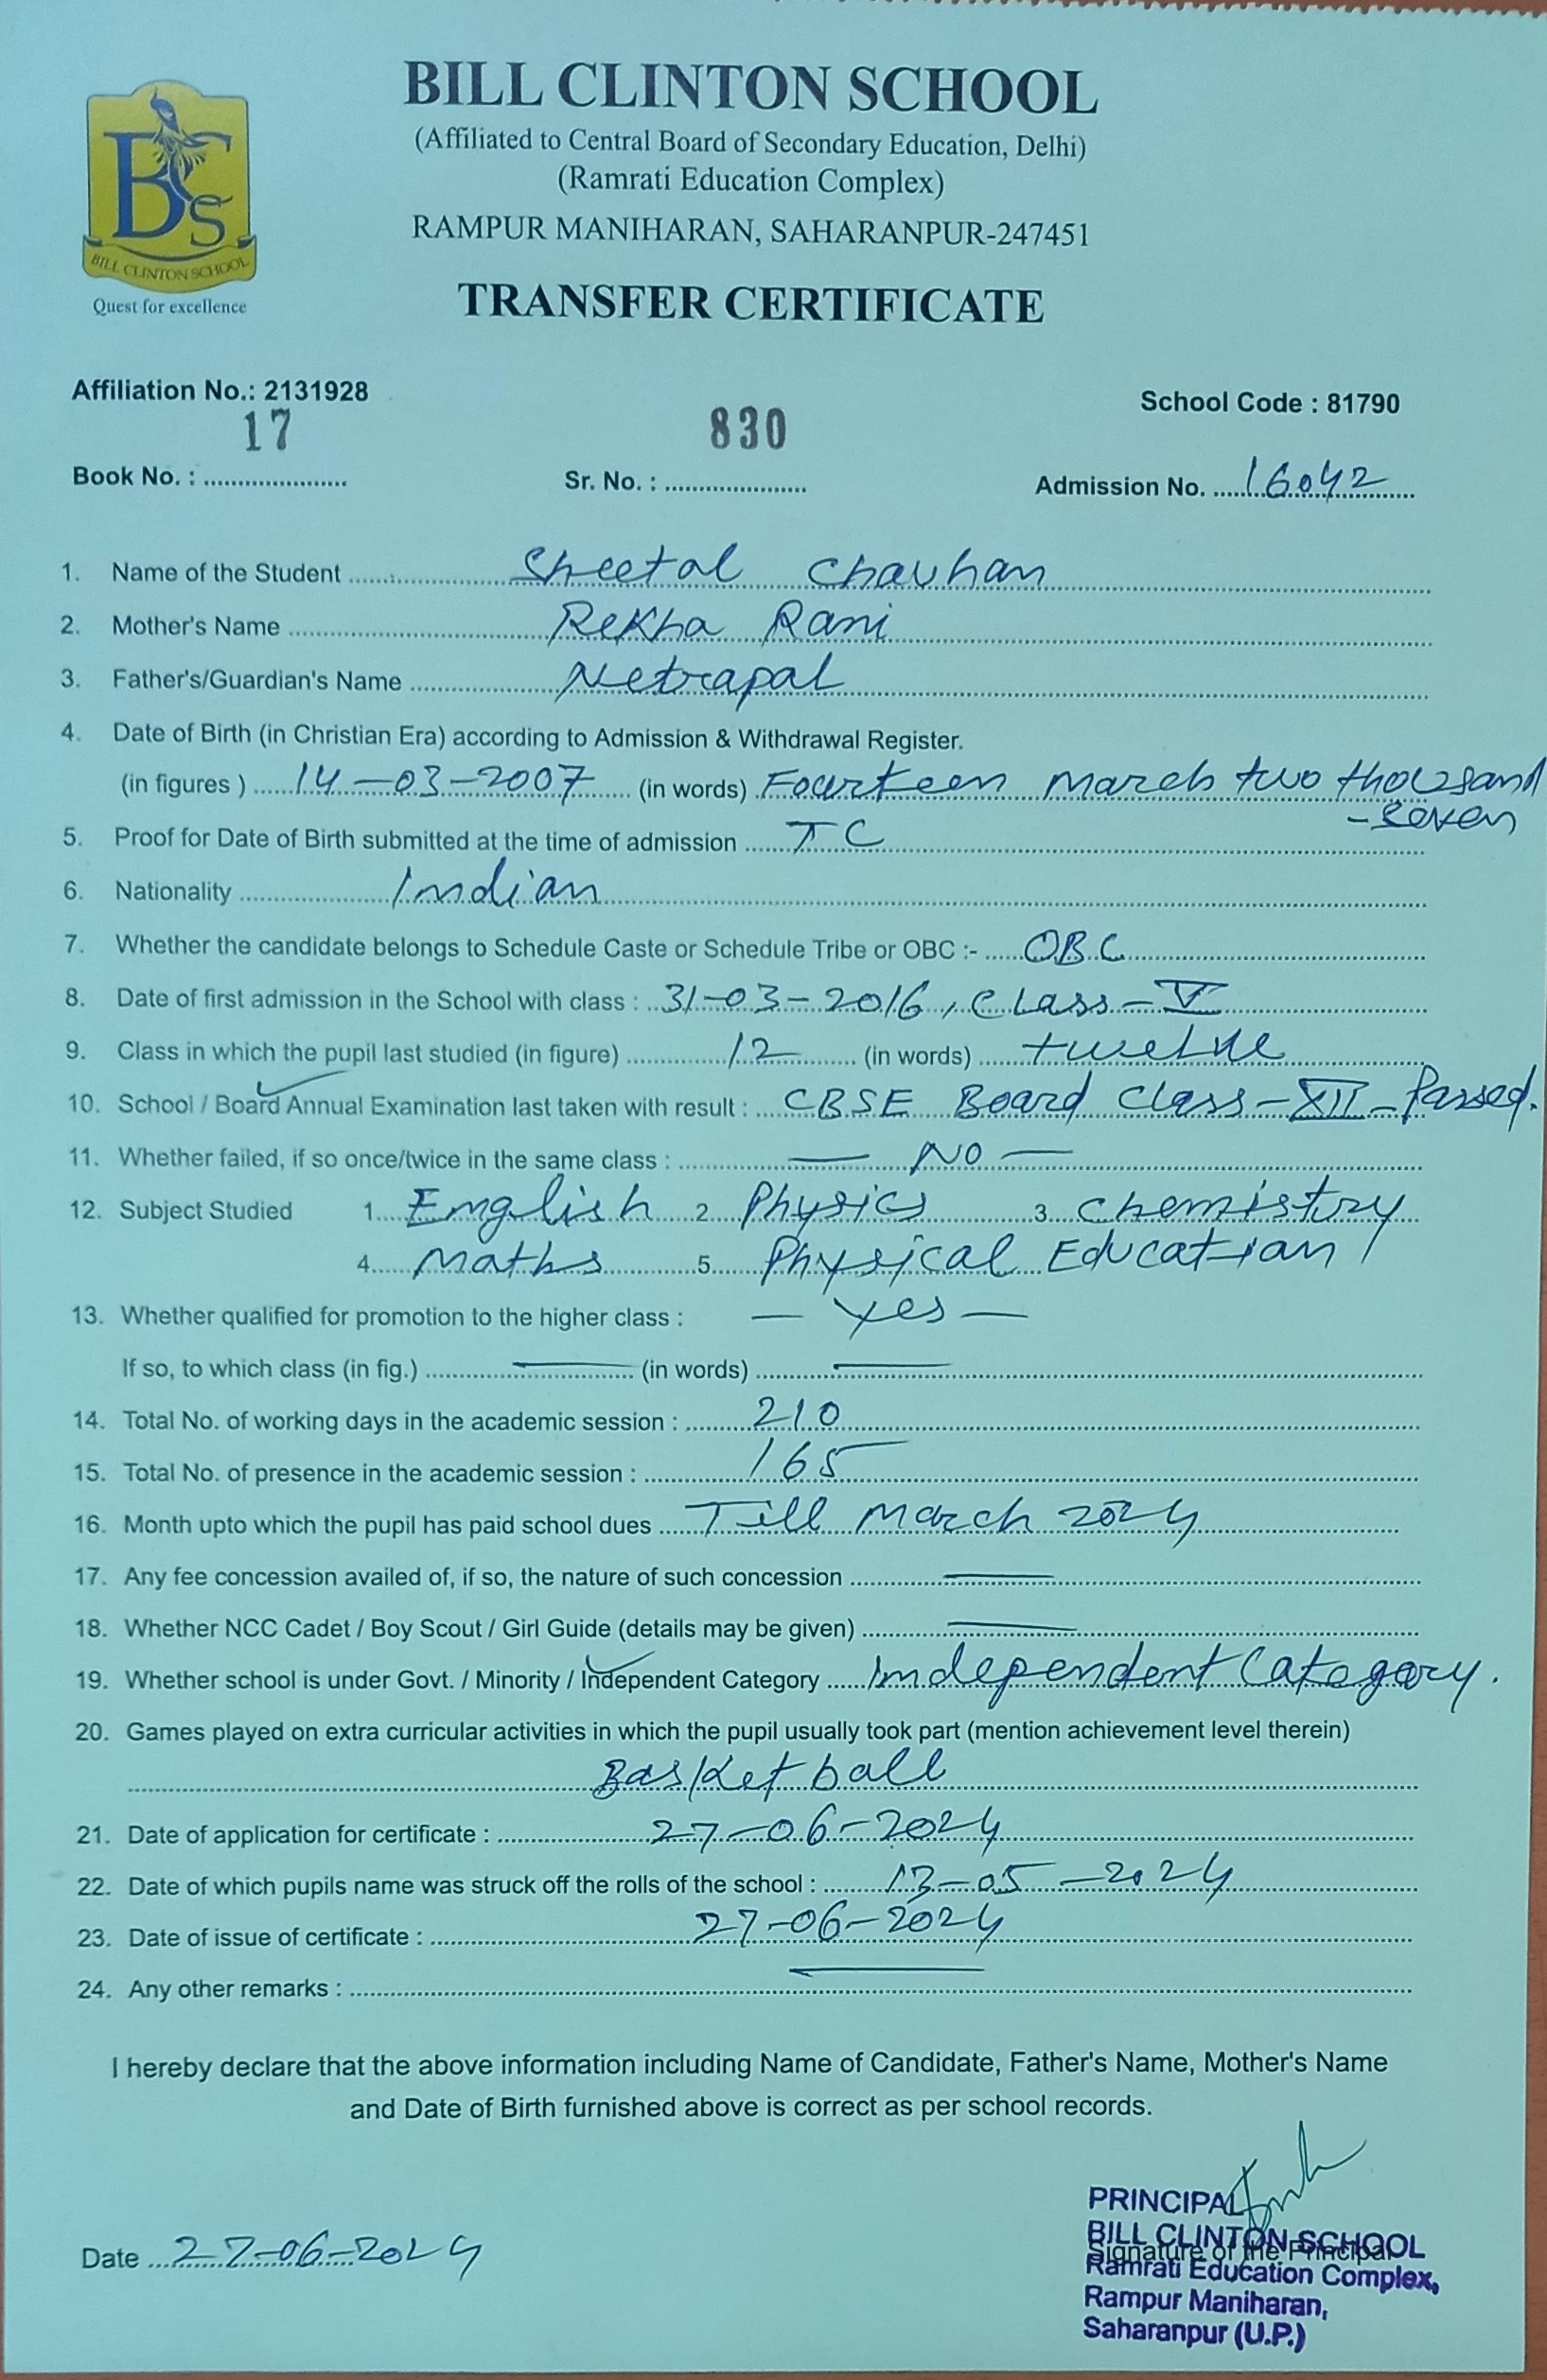 BILL CLINTON SCHOOL
(Affiliated to Central Board of Secondary Education, Delhi)
(Ramrati Education Complex)
RAMPUR MANIHARAN, SAHARANPUR-247451
BCS
BILL CLINTON SCHOOL
Quest for excellence
TRANSFER CERTIFICATE
Affiliation No.: 2131928 School Code : 81790
Book No. : 17 Sr. No. : 830 Admission No. 16042
1. Name of the Student Sheetal Chauhan
2. Mother's Name Rekha Rani
3. Father's/Guardian's Name Netrapal
4. Date of Birth (in Christian Era) according to Admission & Withdrawal Register.
(in figures ) 14-03-2007 (in words) Fourteen March two thousand
-seven
5. Proof for Date of Birth submitted at the time of admission TC
6. Nationality Indian
7. Whether the candidate belongs to Schedule Caste or Schedule Tribe or OBC :- OBC
8. Date of first admission in the School with class : 31-03-2016, Class-V
9. Class in which the pupil last studied (in figure) 12 (in words) twelve
10. School / Board Annual Examination last taken with result : CBSE Board Class-XII-Passed.
11. Whether failed, if so once/twice in the same class : — NO —
12. Subject Studied 1. English 2. Physics 3. Chemistry
4. Maths 5. Physical Education
13. Whether qualified for promotion to the higher class : — Yes —
If so, to which class (in fig.) — (in words) —
14. Total No. of working days in the academic session : 210
15. Total No. of presence in the academic session : 165
16. Month upto which the pupil has paid school dues Till March 2024
17. Any fee concession availed of, if so, the nature of such concession —
18. Whether NCC Cadet / Boy Scout / Girl Guide (details may be given) —
19. Whether school is under Govt. / Minority / Independent Category Independent Category.
20. Games played on extra curricular activities in which the pupil usually took part (mention achievement level therein)
Basketball
21. Date of application for certificate : 27-06-2024
22. Date of which pupils name was struck off the rolls of the school : 13-05-2024
23. Date of issue of certificate : 27-06-2024
24. Any other remarks : —
I hereby declare that the above information including Name of Candidate, Father's Name, Mother's Name
and Date of Birth furnished above is correct as per school records.
Date 27-06-2024
PRINCIPAL
BILL CLINTON SCHOOL
Signature of the Principal
Ramrati Education Complex,
Rampur Maniharan,
Saharanpur (U.P.)